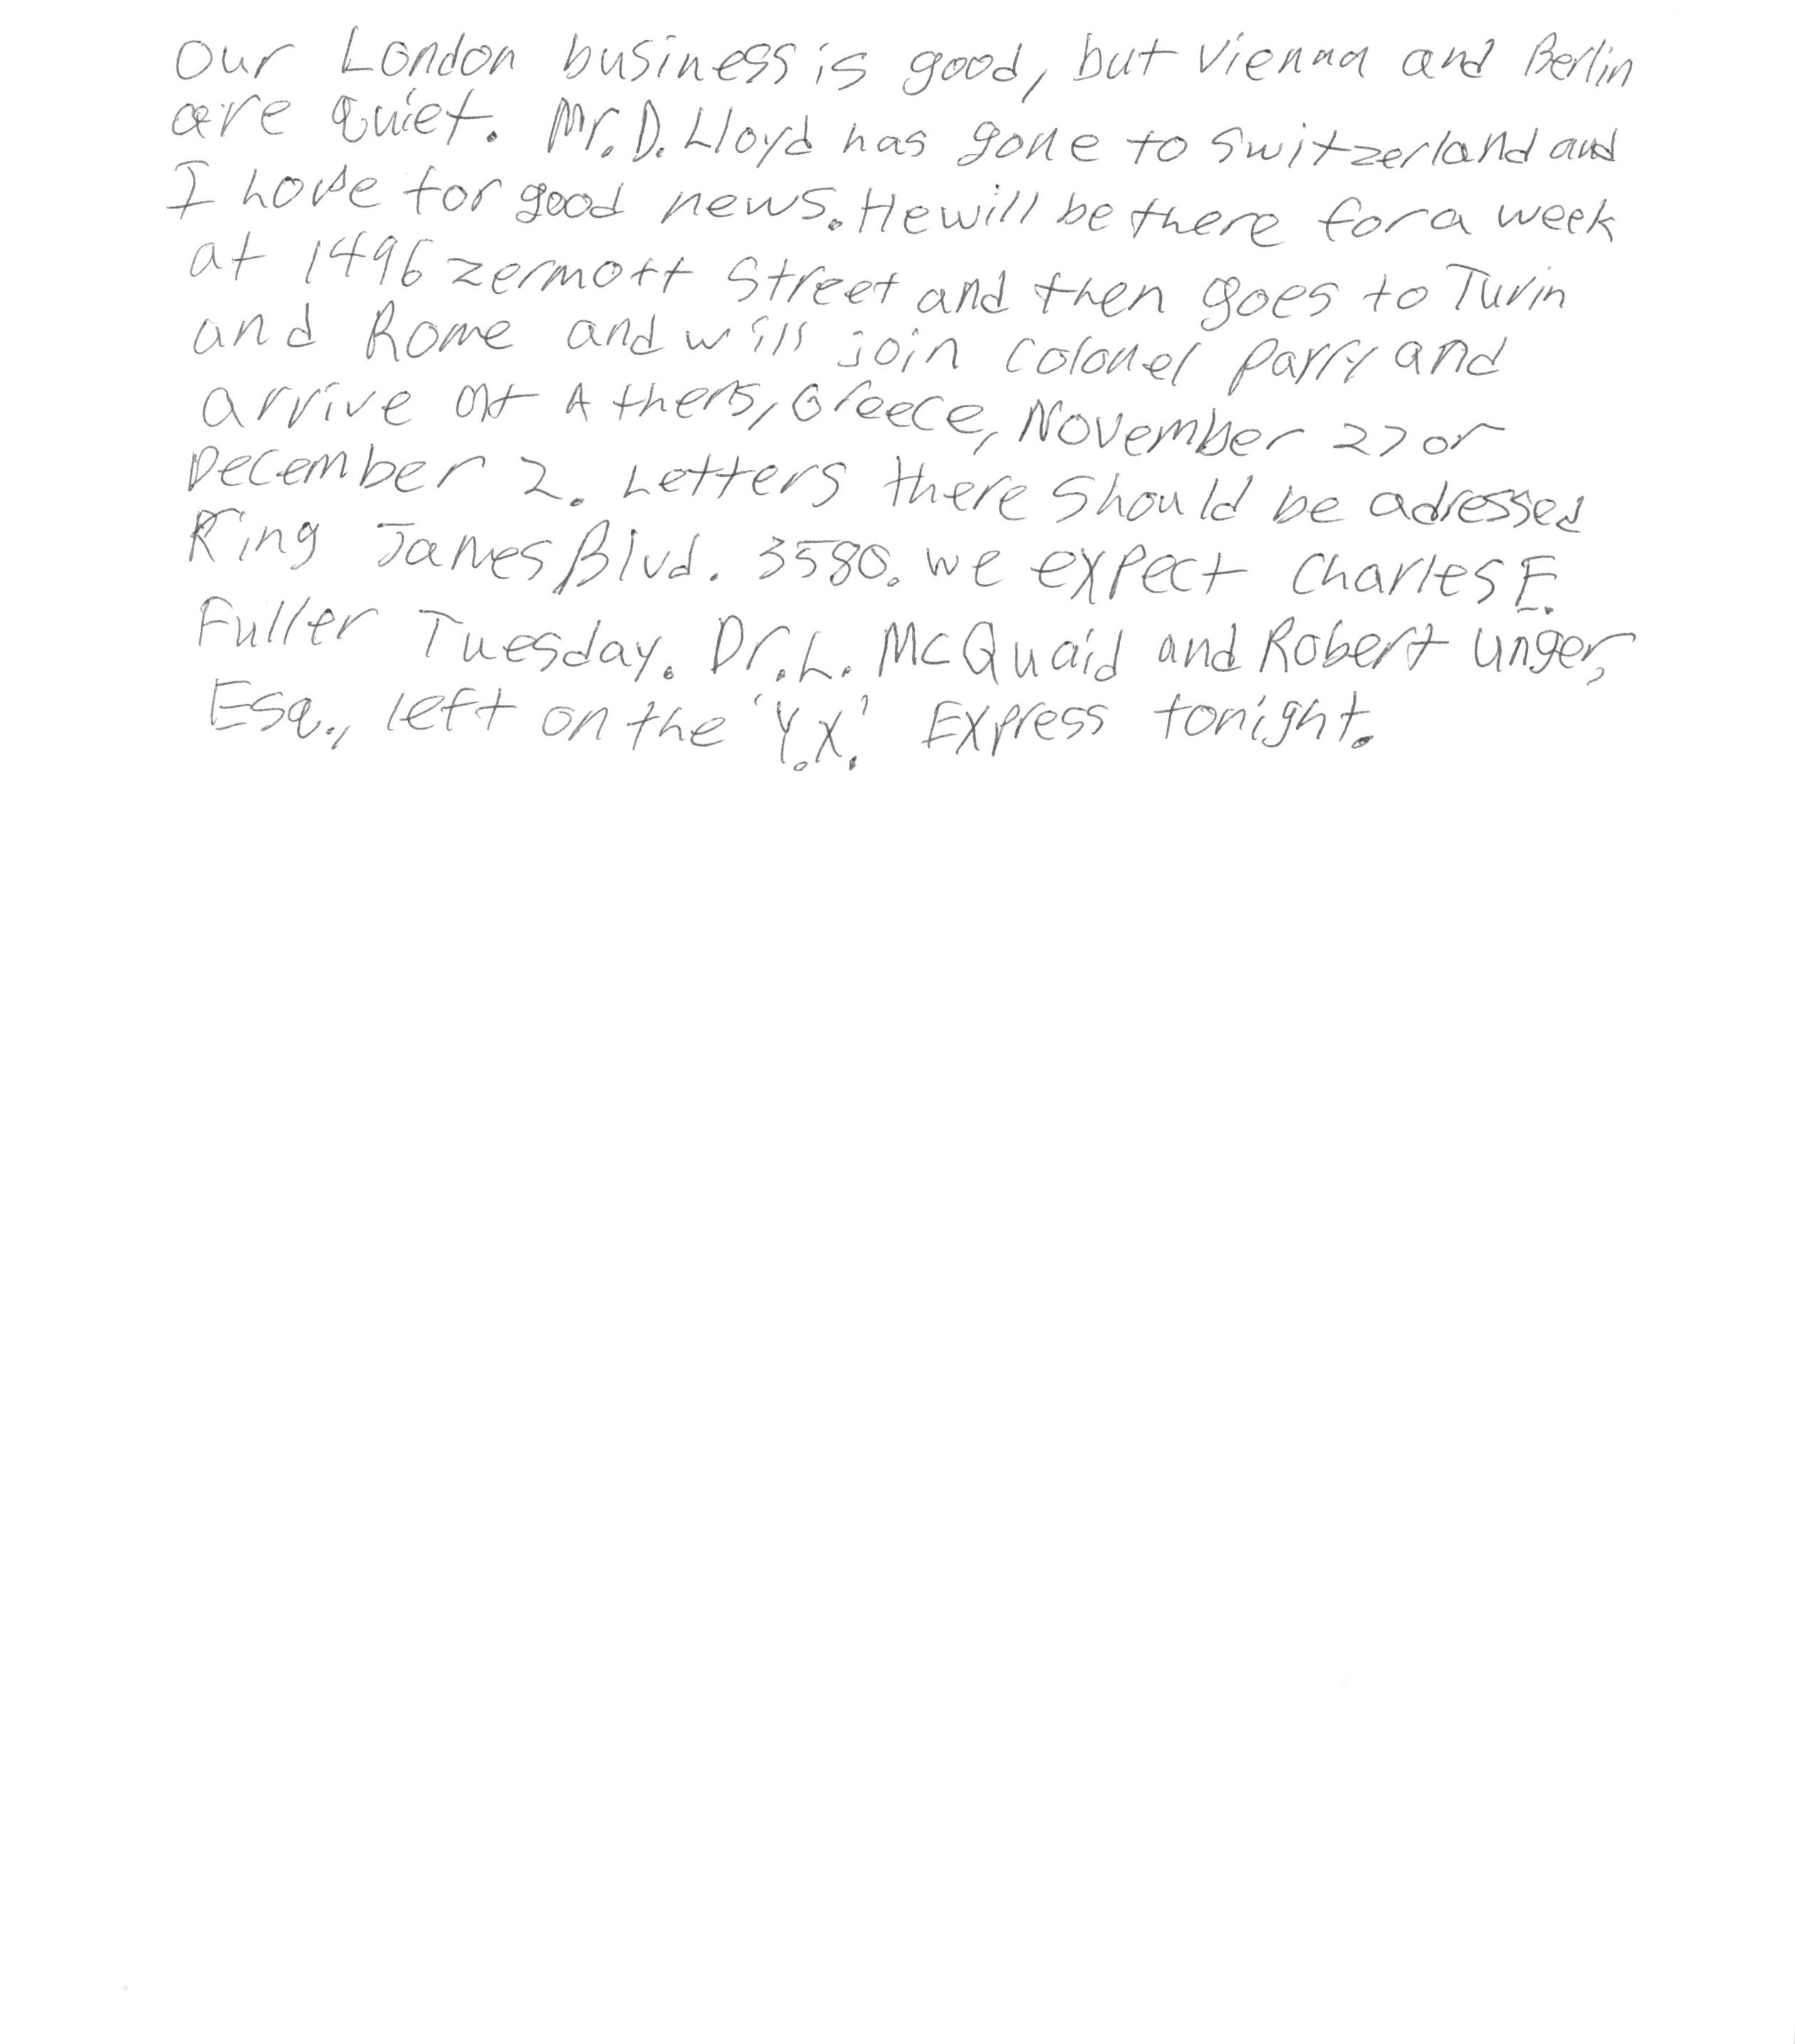 Our London business is good, but Vienna and Berlin
are quiet. Mr. D. Lloyd has gone to Switzerland and
I hope for good news. He will be there for a week
at 1496 Zermott Street and then goes to Turin
and Rome and will join Colonel Parry and
arrive at Athens, Greece, November 27 or
December 2. Letters there should be adressed
King James Blvd. 3580. We expect Charles E.
Fuller Tuesday. Dr. L. McQuaid and Robert Unger,
Esq., left on the 'Y.X.' Express tonight.